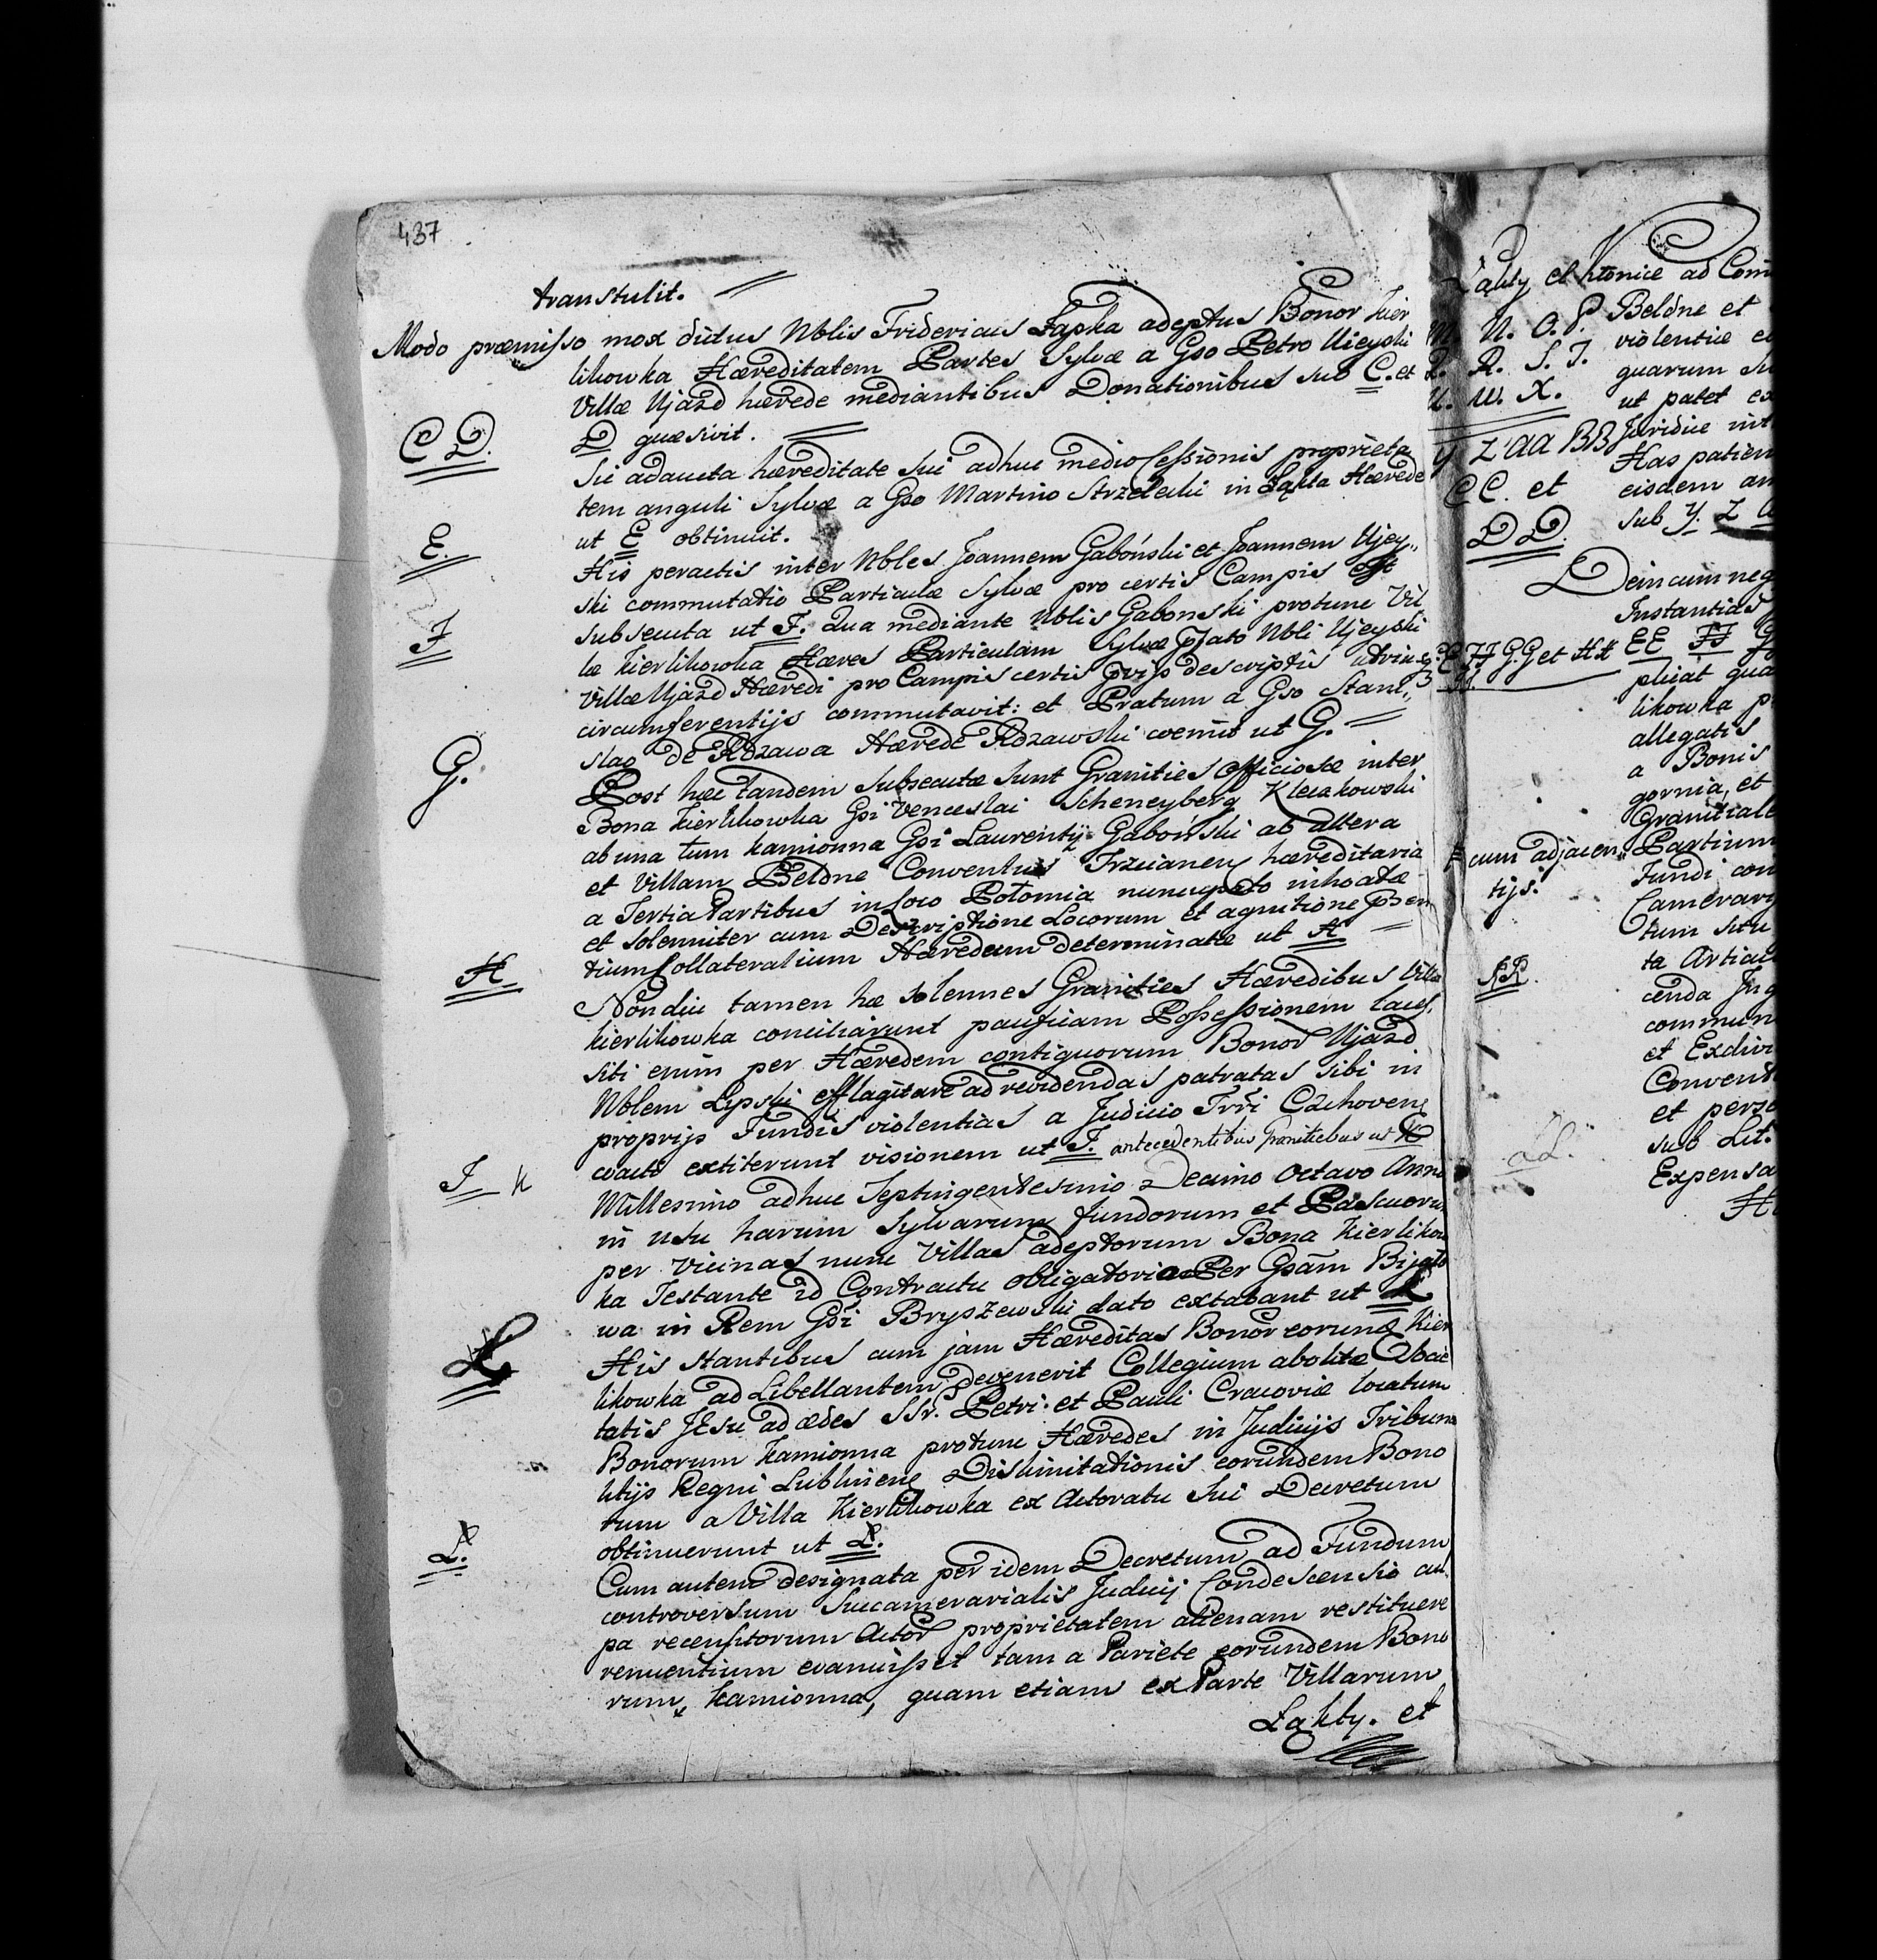 437
transtulit.
Modo præmisso mox dictus Nblis Fridericus Łapka adeptus Bonor Kier
likowka Hæreditatem Partes Sylvæ a Gso Petro Uieyski
Villæ Ujazd hærede mediantibus Donationibus sub C. et
C D.
D quæsivit.
Sic adaucta hæreditate sui adhuc medio Cessionis proprieta
tem anguli Sylvæ a Gso Martino Strzelecki in Łąkta Hærede
E.
ut E obtinuit.
His peractis inter Nbles Joannem Gaboński et Joannem Ujey„
ski commutatio Particulæ Sylvæ pro certis Campis est
F
subsecuta ut F. Qua mediante Nblis Gabonski protunc Vil
læ Kierlikowka Hæres Particulam Sylvæ pfato Nbli Ujeyski
Villæ Ujazd Hæredi pro Campis certis descriptis utriusq
circumferentijs commutavit: et Pratum a Gso Stani„
G.
slao de Rdzawa Hærede Rdzawski coemit ut G.
Post hæc tandem subsecutæ sunt Granities officiosæ inter
Bona Kierlikowka Gsi Venceslai Scheneyberg Kleczkowski
ab una tum Kamionna Gsi Laurentij Gaboński ab altera
et Villam Beldne Conventus Trzcianen hæreditaria
a Tertia Partibus in loco Połomia nuncupato inhoatæ
et solenniter cum Descriptione Locorum et agnitione psen
H
tium Collateralium Hæredum determinatæ ut H
Non diu tamen hæ solennes Granities Hæredibus Villæ
Kierlikowka conciliarunt pacificam Possessionem laces„
siti enim per Hæredem contiguorum Bonor Ujazd
Nblem Lipski efflagitare ad revidendas patratas sibi in
proprijs Fundis violentias a Judicio Trri Czchoven
J K
coacti extiterunt visionem ut J. antecedentibus Granitiebus ut K
Millesimo adhuc Septingentesimo Decimo Octavo Anno
in usu harum Sylvarum fundorum et Pascuorum
per vicinas nunc Villas adeptorum Bona Kierliko
ka Testante id Contractu obligatorio Per Gsam
wa in Rem Gsi Bryszewski dato extabant ut
His stantibus cum jam Hæreditas Bonor eorund Kier
likowka ad Libellantem devenerit Collegium abolitæ Socie
tatis JEsu ad ædes SSr. Petri et Pauli Cracoviæ locatum
Bonorum Kamionna protunc Hæredes in Judicijs Tribuna
litijs Regni Lublinen Dislimitationis eorundem Bono
rum a Villa Kierlikowka ex Actoratu sui Decretum
L.
obtinuerunt ut L.
Cum autem designata per idem Decretum ad Fundum
controversum Succamerarialis Judicij Condescensio cul„
pa recensitorum Actor proprietatem alienam restituere
renuentium evanuisset tam a Pariete eorundem Bono
rum Kamionna, quam etiam ex Parte Villarum
Łąkty. et
Łąkty et Ktonice ad Com
M. N. O. P. Beldne et
Q. R. S. T. violentiæ
U. W. X. quarum
ut patet ex
Y Z AA BB Juridice int
CC. et Has patien
DD. eisdem an
sub Y. Z
Dein cum neg
Instantias
EE FF GG et HH EE FF G
plicat qua
likowka p
allegatis
a Bonis
gornia, et
Granitiale
cum adjacen„ Partium
tijs. Fundi con
Camerari
tum situ
ta Articu
cenda
commun
et Exdivi
Convent
et perso
sub Lit.
Expensa